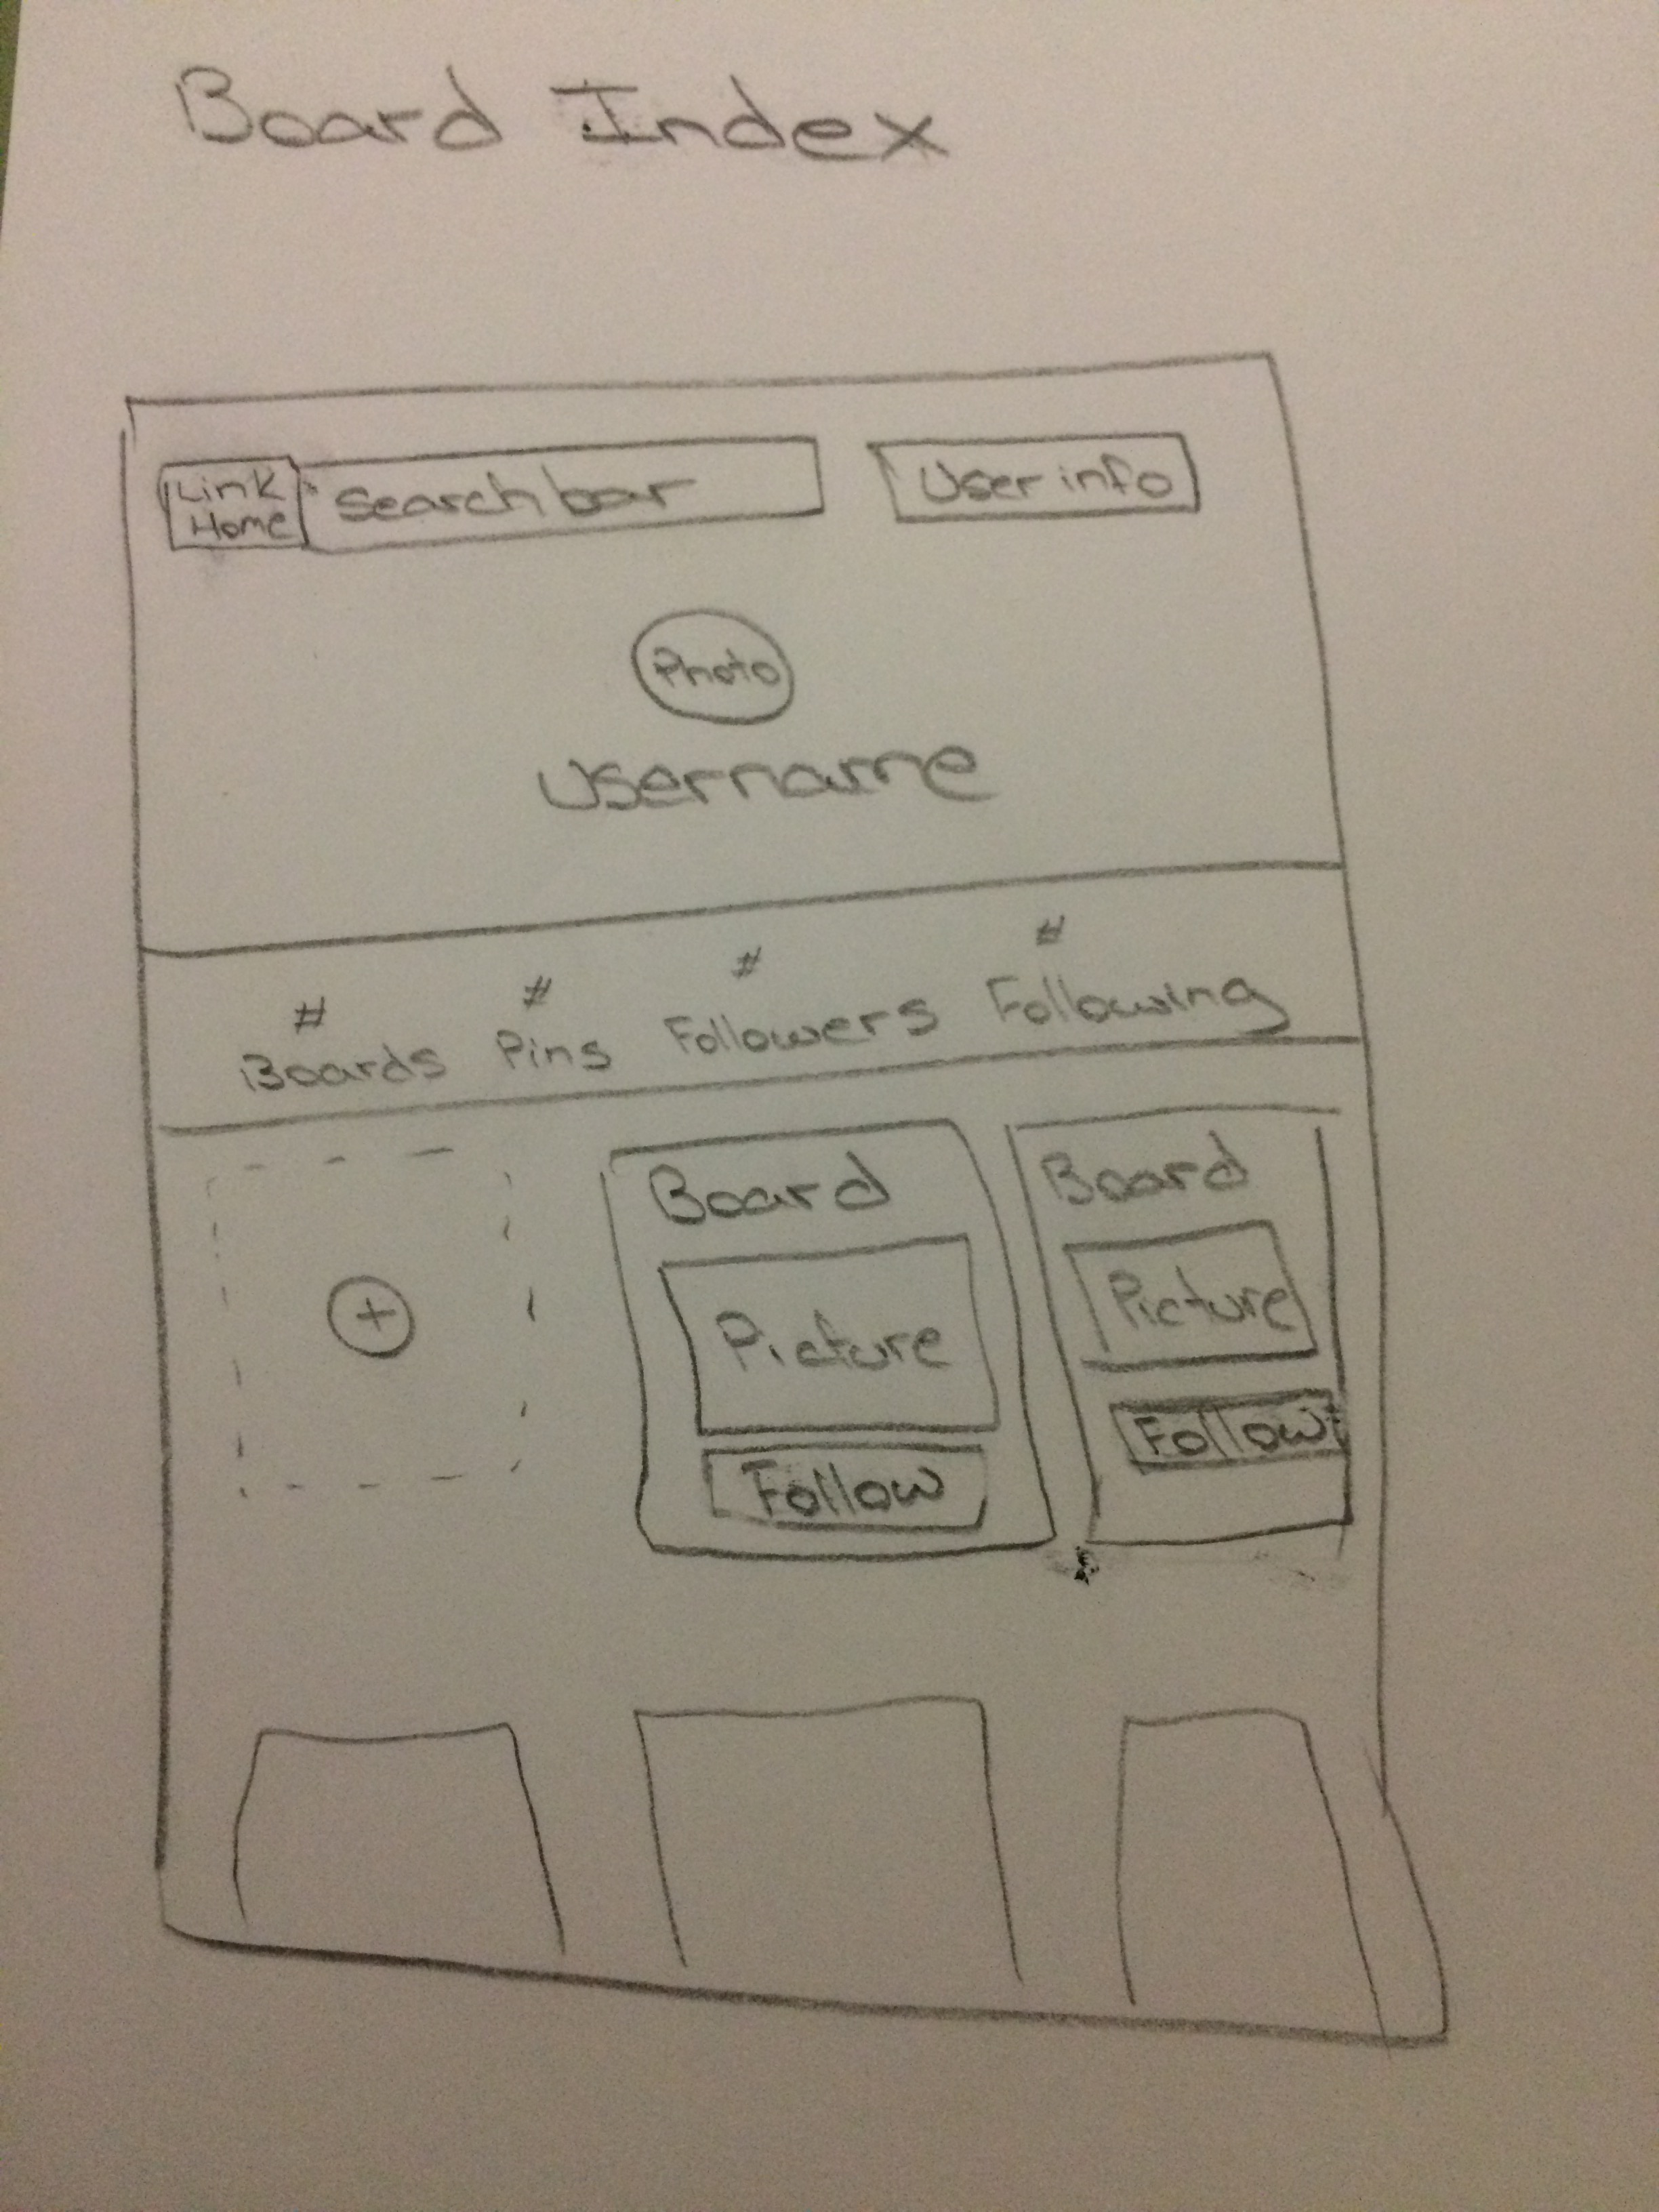 Board Index
Link
Home
Search bar
User info
Photo
Username
# # # #
Boards Pins Followers Following
+
Board
Picture
Follow
Board
Picture
Follow